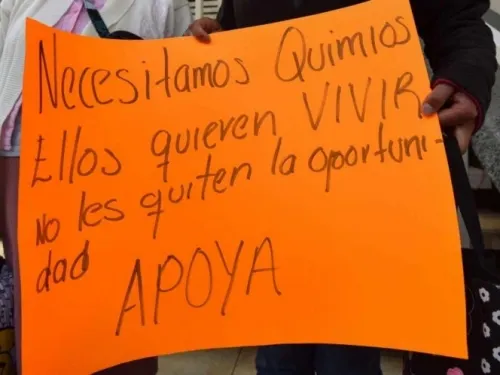 Necesitamos Quimios
Ellos quieren VIVIR
No les quiten la oportuni-
dad
APOYA